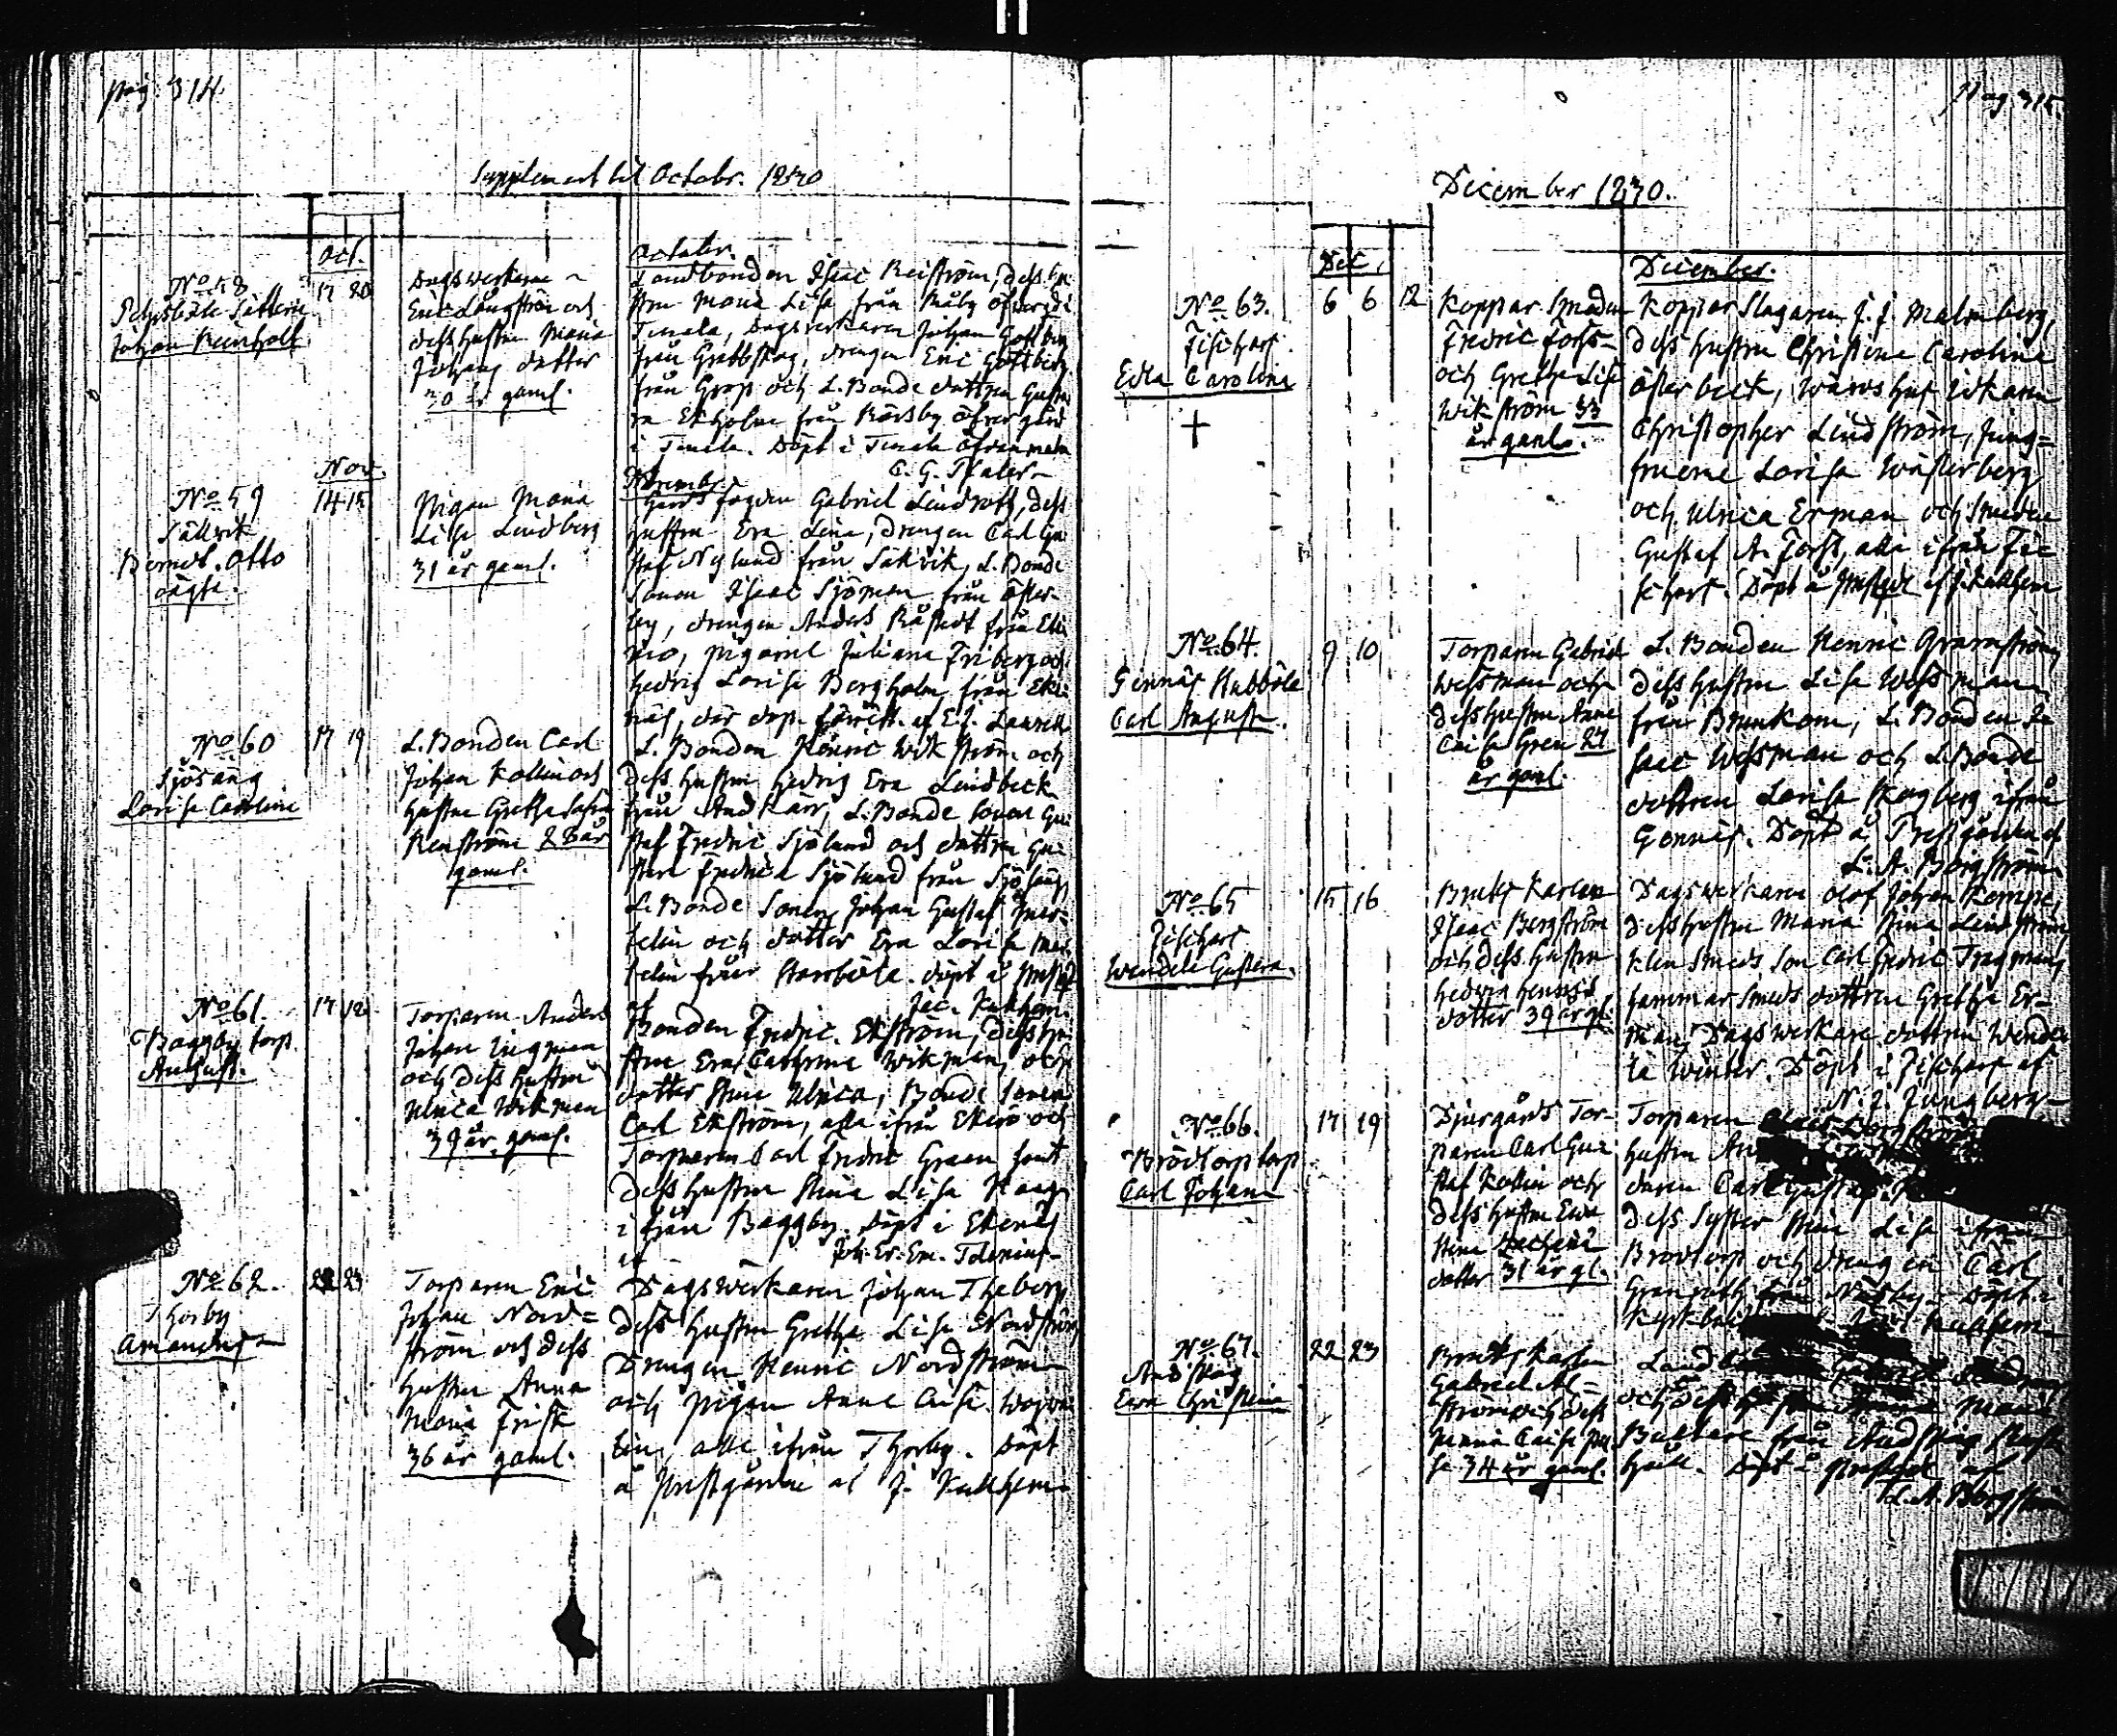 pag. 314.
Supplement til Octobr. 1830
Oct.
October.
No 58
Sätterie
Johan Reinholt
17 20
Dagsverkaren
Eric Långström och
dess hustru Maria
Johans dotter
30 år gaml.
Landbonden Isaac Renström, dess hu
stru Maria Lisa från Måby öfvergd i
Tenala, Dagsverkaren Johan Gottberg
från Grabbskog, drengen Eric Gottberg
från och L. Bonde dottren Gusta
va Ekholm från öfver gård
i Tenala. Döpt i Tenala
C. G.
Nov.
November.
No 59
Sällvik
Berndt Otto
oägta.
14 15
Pigan Maria
Lisa Lindberg
31 år gaml.
Gårds fogden Gabriel Lindroth, dess
hustru Eva Lena, Drengen Carl Gu
staf Nylund från Sälvik, L. Bonde
Sonen Isaac Sjöman från Öster-
by, drengen Anders från Eke
nas, pigorne Juliana Friberg och
Hedvig Lovisa Bergholm från Eke
näs, der dop. förrätt. af E. J.
No 60
Sjösäng
Lovisa Carolina
17 19
L. Bonden Carl
Johan Kollin och
hustru Gretha Sofia
Renström 28 år
gaml.
L. Bonden Henric Wikström och
dess hustru Hedvig Eva Lindbeck
från Andkärr, L. Bonde sonen Gu
staf Fredric Sjölund och dottren Gu
stava Fredrica Sjölund från Sjösäng
L. Bonde Sonen Johan Gustaf
och dotter Eva Lovisa
från Starrböle. döpt å
af Jac. Kullhem.
No 61.
Baggby torp.
August.
17 18
Torparen Anders
Johan Lingman
och dess hustru
Ulrica Wikman
39 år gaml.
Bonden Fredric Ekström, dess hu-
stru Eva Catharina Wikman och
dotter Stina Ulrica, Bonde Sonen
Carl Ekström, alla ifrån Ekerö och
Torparen Carl Fredric Green samt
dess hustru Stina Lisa
ifrån Baggby. Döpt i Ekenäs
af Joh. Er. Em.
No 62.
Thorby
Amandus
22 23
Torparen Eric
Johan Nord=
ström och dess
hustru Anna
Maria Frisk
36 år gaml.
Dagsverkaren Johan Theberg
dess hustru Gretha Lisa Nordström
Drengen Henric Nordström
och pigan Anna Caisa
alla ifrån Thorby. Döpt
å prestgården af J. Kullhem
Pag. 315.
December 1830.
Dec.
December.
No 63.
Fischars
Edla Carolina
+
6 6 12
Koppar Smeden
Fredric Forss-
och Gretha Lisa
Wikström 33
år gaml.
Koppar Slagaren J. J. Malmberg,
dess hustru Christina Carolina
Österbeck, Wärdshus Idkaren
Christopher Lindström, Jung=
fruerne Lovisa Wästerberg
och Ulrica Erman och Smeden
Gustaf A. Forss, alla ifrån Fi
schars. Döpt å af J. Kullhem
No 64.
Gennäs Stubböle
Carl August.
9 10
Torparen Gabriel
Wessman och
dess hustru Anna
Caisa Gren 27
år gaml.
L. Bonden Henric Granström
dess hustru Lisa Wessman
från Brunkom, L. Bonden I
saac Wessman och L. Bonde
dottren Lovisa Skogberg ifrån
Gennäs. Döpt å Prestgården af
L. A. Borgström
No 65
Fischars
Wendela Gustava.
15 16
Bruks Karlen
Isaac Bergström
och dess hustru
Hedvig Henrics
dotter 39 år gl.
Dagsverkaren Olof Johan Kempe,
dess hustru Maria Stina Lindström
Klensmeds Son Carl Fredric Tragman,
hammar smeds dottren Gretha Er-
man, Dagsverkare dottren Wende
la Winter. Döpt i Fischars af
N. J. Jungberg
No 66.
Brödtorp torp
Carl Johan
17 19
Djurgårds Tor-
paren Carl Gu
staf Kollin och
dess hustru Eva
Stina
dotter 31 år gl.
Torparen
hustru
Carl Gustaf
dess Syster Stina Lisa ifrån
Brödtorp och drengen Carl
Granroth från Näsby. Döpt i
Kullhem
No 67.
Andskog
Eva Christina
22 23
Bruks Karlen
Gabriel Al=
ström och dess
Maria Caisa
34 år gaml.
Land
och dess
från Andskog
Döpt å af
L. A. Borgström